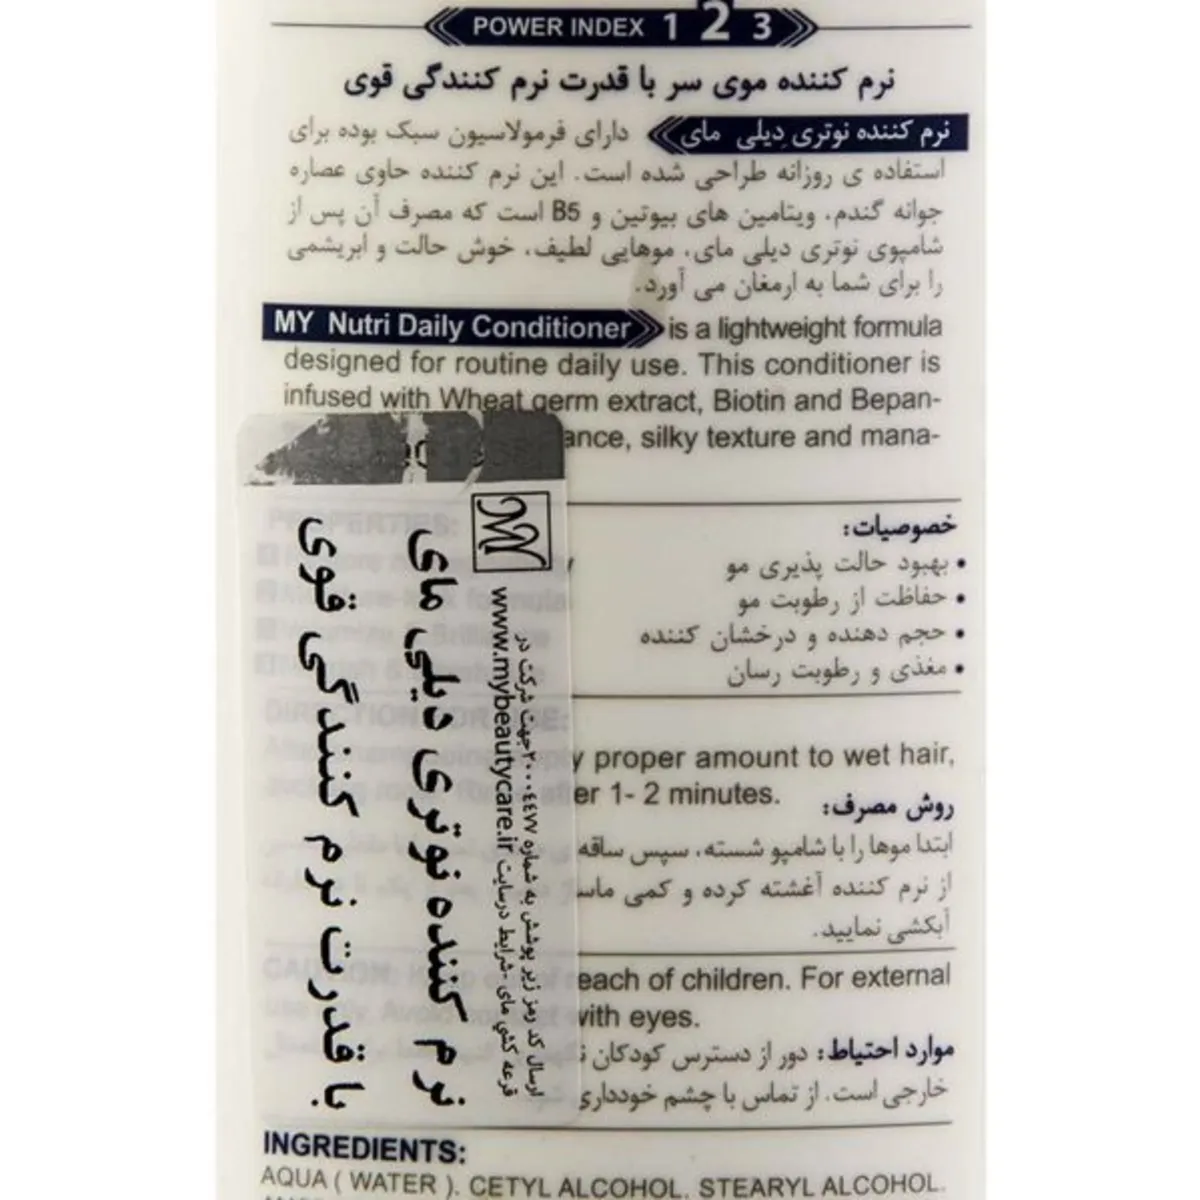 POWER INDEX 1 2 3
نرم کننده موی سر با قدرت نرم کنندگی قوی
نرم کننده نوتری دِیلی مای دارای فرمولاسیون سبک بوده برای
استفاده ی روزانه طراحی شده است. این نرم کننده حاوی عصاره
جوانه گندم، ویتامین های بیوتین و B5 است که مصرف آن پس از
شامپوی نوتری دیلی مای، موهایی لطیف، خوش حالت و ابریشمی
را برای شما به ارمغان می آورد.
MY Nutri Daily Conditioner is a lightweight formula
designed for routine daily use. This conditioner is
infused with Wheat germ extract, Biotin and Bepan-
ance, silky texture and mana-
PROPERTIES:
خصوصیات:
• بهبود حالت پذیری مو
• حفاظت از رطوبت مو
• حجم دهنده و درخشان کننده
• مغذی و رطوبت رسان
DIRECTION FOR USE:
y proper amount to wet hair,
er 1- 2 minutes.
روش مصرف:
ابتدا موها را با شامپو شسته، سپس ساقه
از نرم کننده آغشته کرده و کمی ماسا
آبکشی نمایید.
CAUTION: Keep out of reach of children. For external
use only. Avoid contact with eyes.
موارد احتیاط: دور از دسترس کودکان
خارجی است. از تماس با چشم خودداری
INGREDIENTS:
AQUA ( WATER ), CETYL ALCOHOL, STEARYL ALCOHOL,
MY
ارسال کد رمز زیر پوشش به شماره ۲۰۰۰۴٤۷۷ جهت شرکت در
قرعه کشی مای -شرایط درسایت www.mybeautycare.ir
نرم کننده نوتری دیلی مای
با قدرت نرم کنندگی قوی